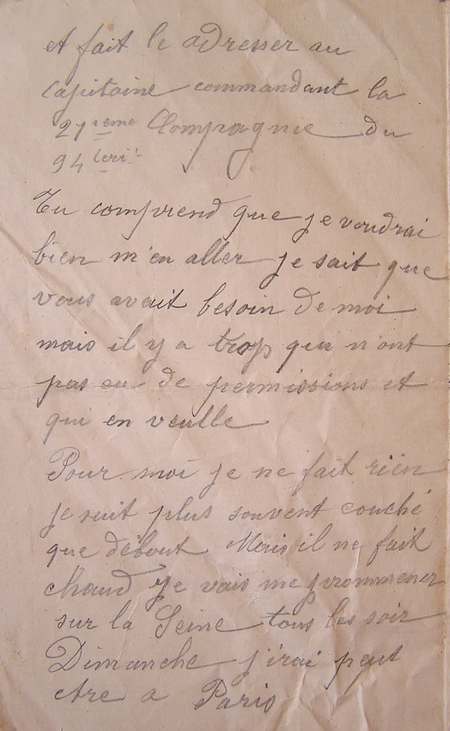 et fait le adresser au
capitaine commandant la
27 ieme Compagnie du
94 teri
Tu comprend que je voudrai
bien m'en aller je sait que
vous avait besoin de moi
mais il y a trop qui n'ont
pas eu de permissions et
qui en veulle
Pour moi je ne fait rien
je suit plus souvent couché
que débout Mais il ne fait
chaud je vais me prommener
sur la Seine tous les soir
Dimanche j'irai peut
etre a Paris